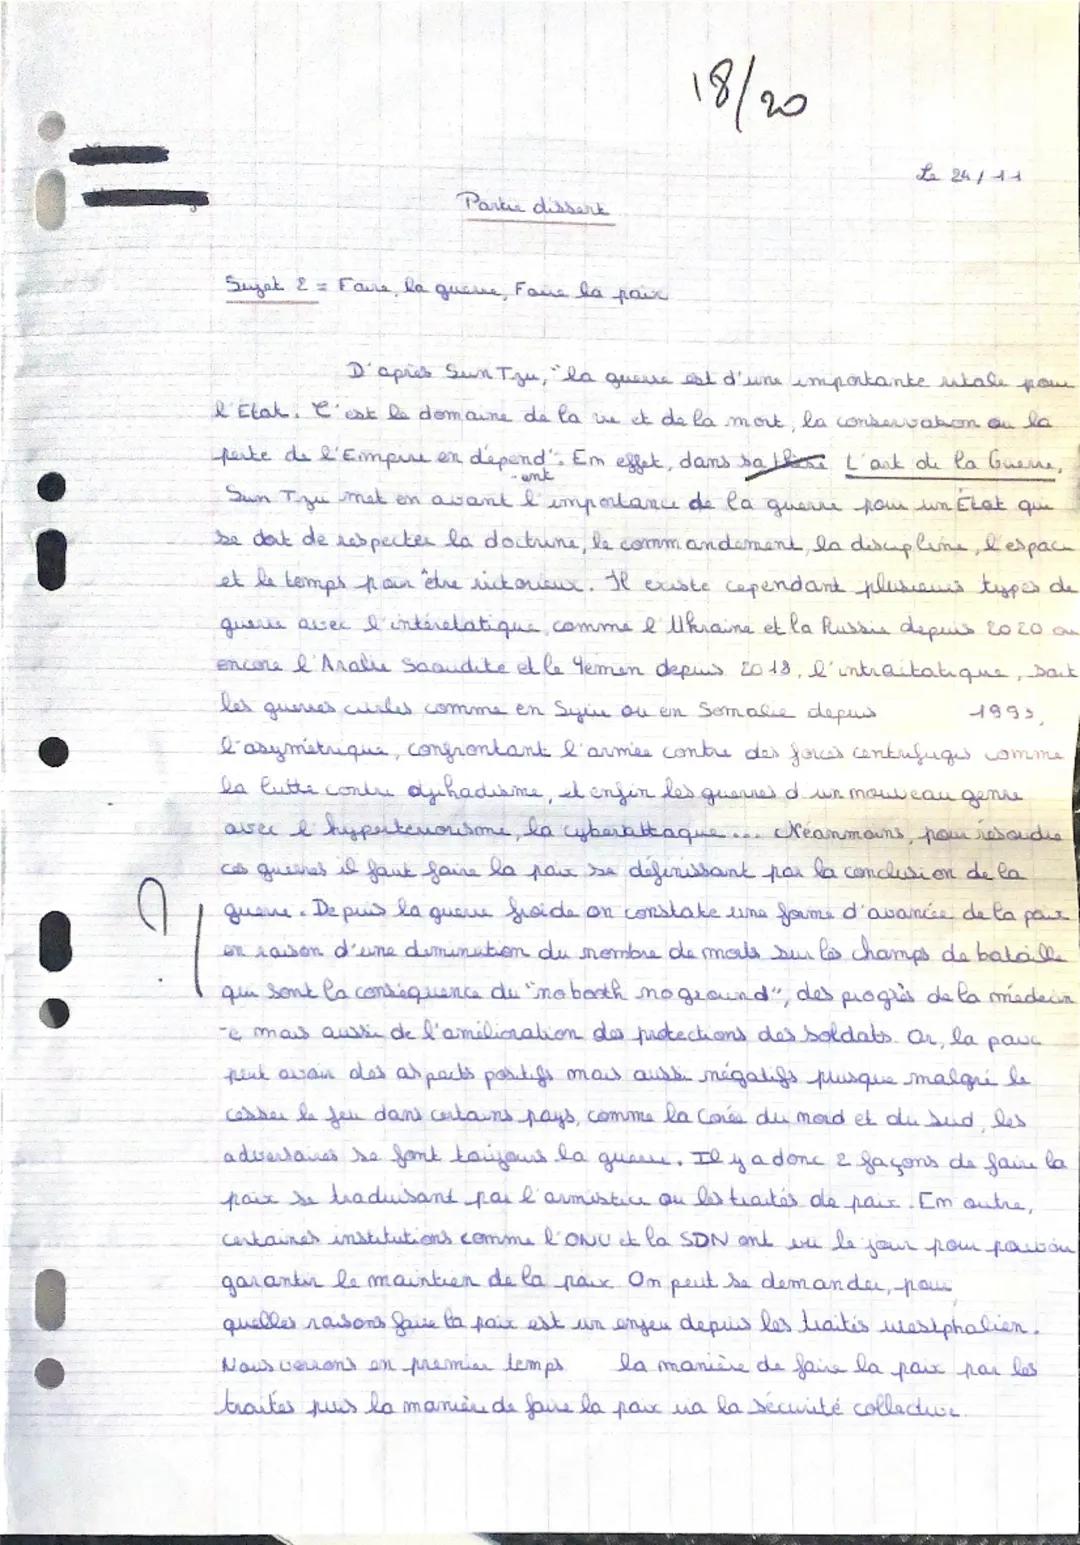 18/20
Le 24/11
Partie dissert
Sujet 2 = Faire la guerre, Faire la paix
D'après Sun Tzu, "la guerre est d'une importante vitale pour
l'Etat. C'est le domaine de la vie et de la mort, la conservation ou la
perte de l'Empire en dépend". Em effet, dans sa thèse L'art de la Guerre,
Sun Tzu met en avant l'importance de la guerre pour un État qui
se doit de respecter la doctrine, le commandement, la discipline, l'espace
et le temps pour être victorieux. Il existe cependant plusieurs types de
guerre avec l'interétatique, comme l'Ukraine et la Russie depuis 2020 ou
encore l'Arabie Saoudite et le Yémen depuis 2018, l'intraitatique, soit
les guerres civiles comme en Syrie ou en Somalie depuis 1993,
l'asymétrique, confrontant l'armée contre des forces centrifuges comme
la lutte contre djihadisme, et enfin les guerres d'un mouveau genre
avec l'hyperterrorisme, la cyberattaque ... Néanmoins, pour résoudre
ces guerres il faut faire la paix se définissant par la conclusion de la
? guerre. Depuis la guerre froide on constate une forme d'avancée de la paix
en raison d'une diminution du nombre de morts sur les champs de bataille
qui sont la conséquence du "no booth no ground", des progrès de la médecin
-e mais aussi de l'amélioration des protections des soldats. Or, la paix
peut avoir des aspects positifs mais aussi négatifs puisque malgré le
cesser le feu dans certains pays, comme la Corée du nord et du Sud, les
adversaires se font toujours la guerre. Il y a donc 2 façons de faire la
paix se traduisant par l'armistice ou les traités de paix. Em outre,
certaines institutions comme l'ONU et la SDN ont vu le jour pour pouvoir
garantir le maintien de la paix. On peut se demander, pour
quelles raisons faire la paix est un enjeu depuis les traités westphalien.
Nous verrons en premier temps la manière de faire la paix par les
traités puis la manière de faire la paix via la sécurité collective.